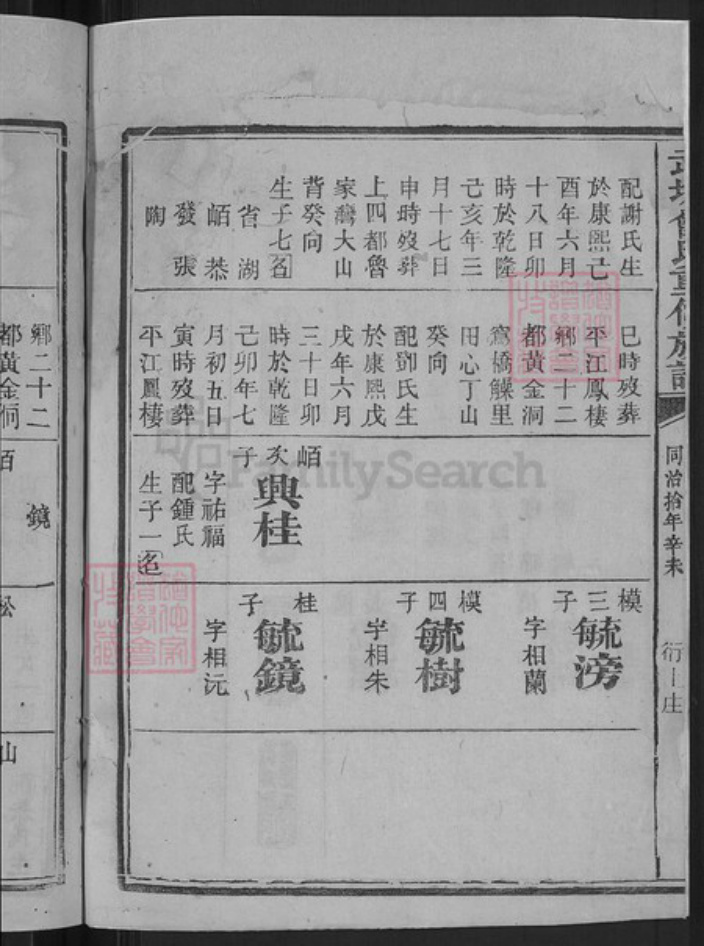 曾氏重修族譜
同治拾年辛未
配謝氏生
於康熙己
酉年六月
十八日卯
時於乾隆
己亥年三
月十七日
申時歿葬
上四都魯
家灣大山
背癸向
生子七名
省湖
峏恭
發張
陶
巳時歿葬
平江鳳棲
鄉二十二
都黃金洞
窩橋鰈里
田心丁山
癸向
配鄧氏生
於康熙戊
戌年六月
三十日卯
時於乾隆
己卯年七
月初五日
寅時歿葬
平江鳳棲
峏次子
興桂
字祐福
配鍾氏
生子一名
模三子
毓滂
字相蘭
模四子
毓樹
字相朱
桂子
毓鏡
字相沅
鄉二十二
都黃金洞
鏡
松
山
FamilySearch